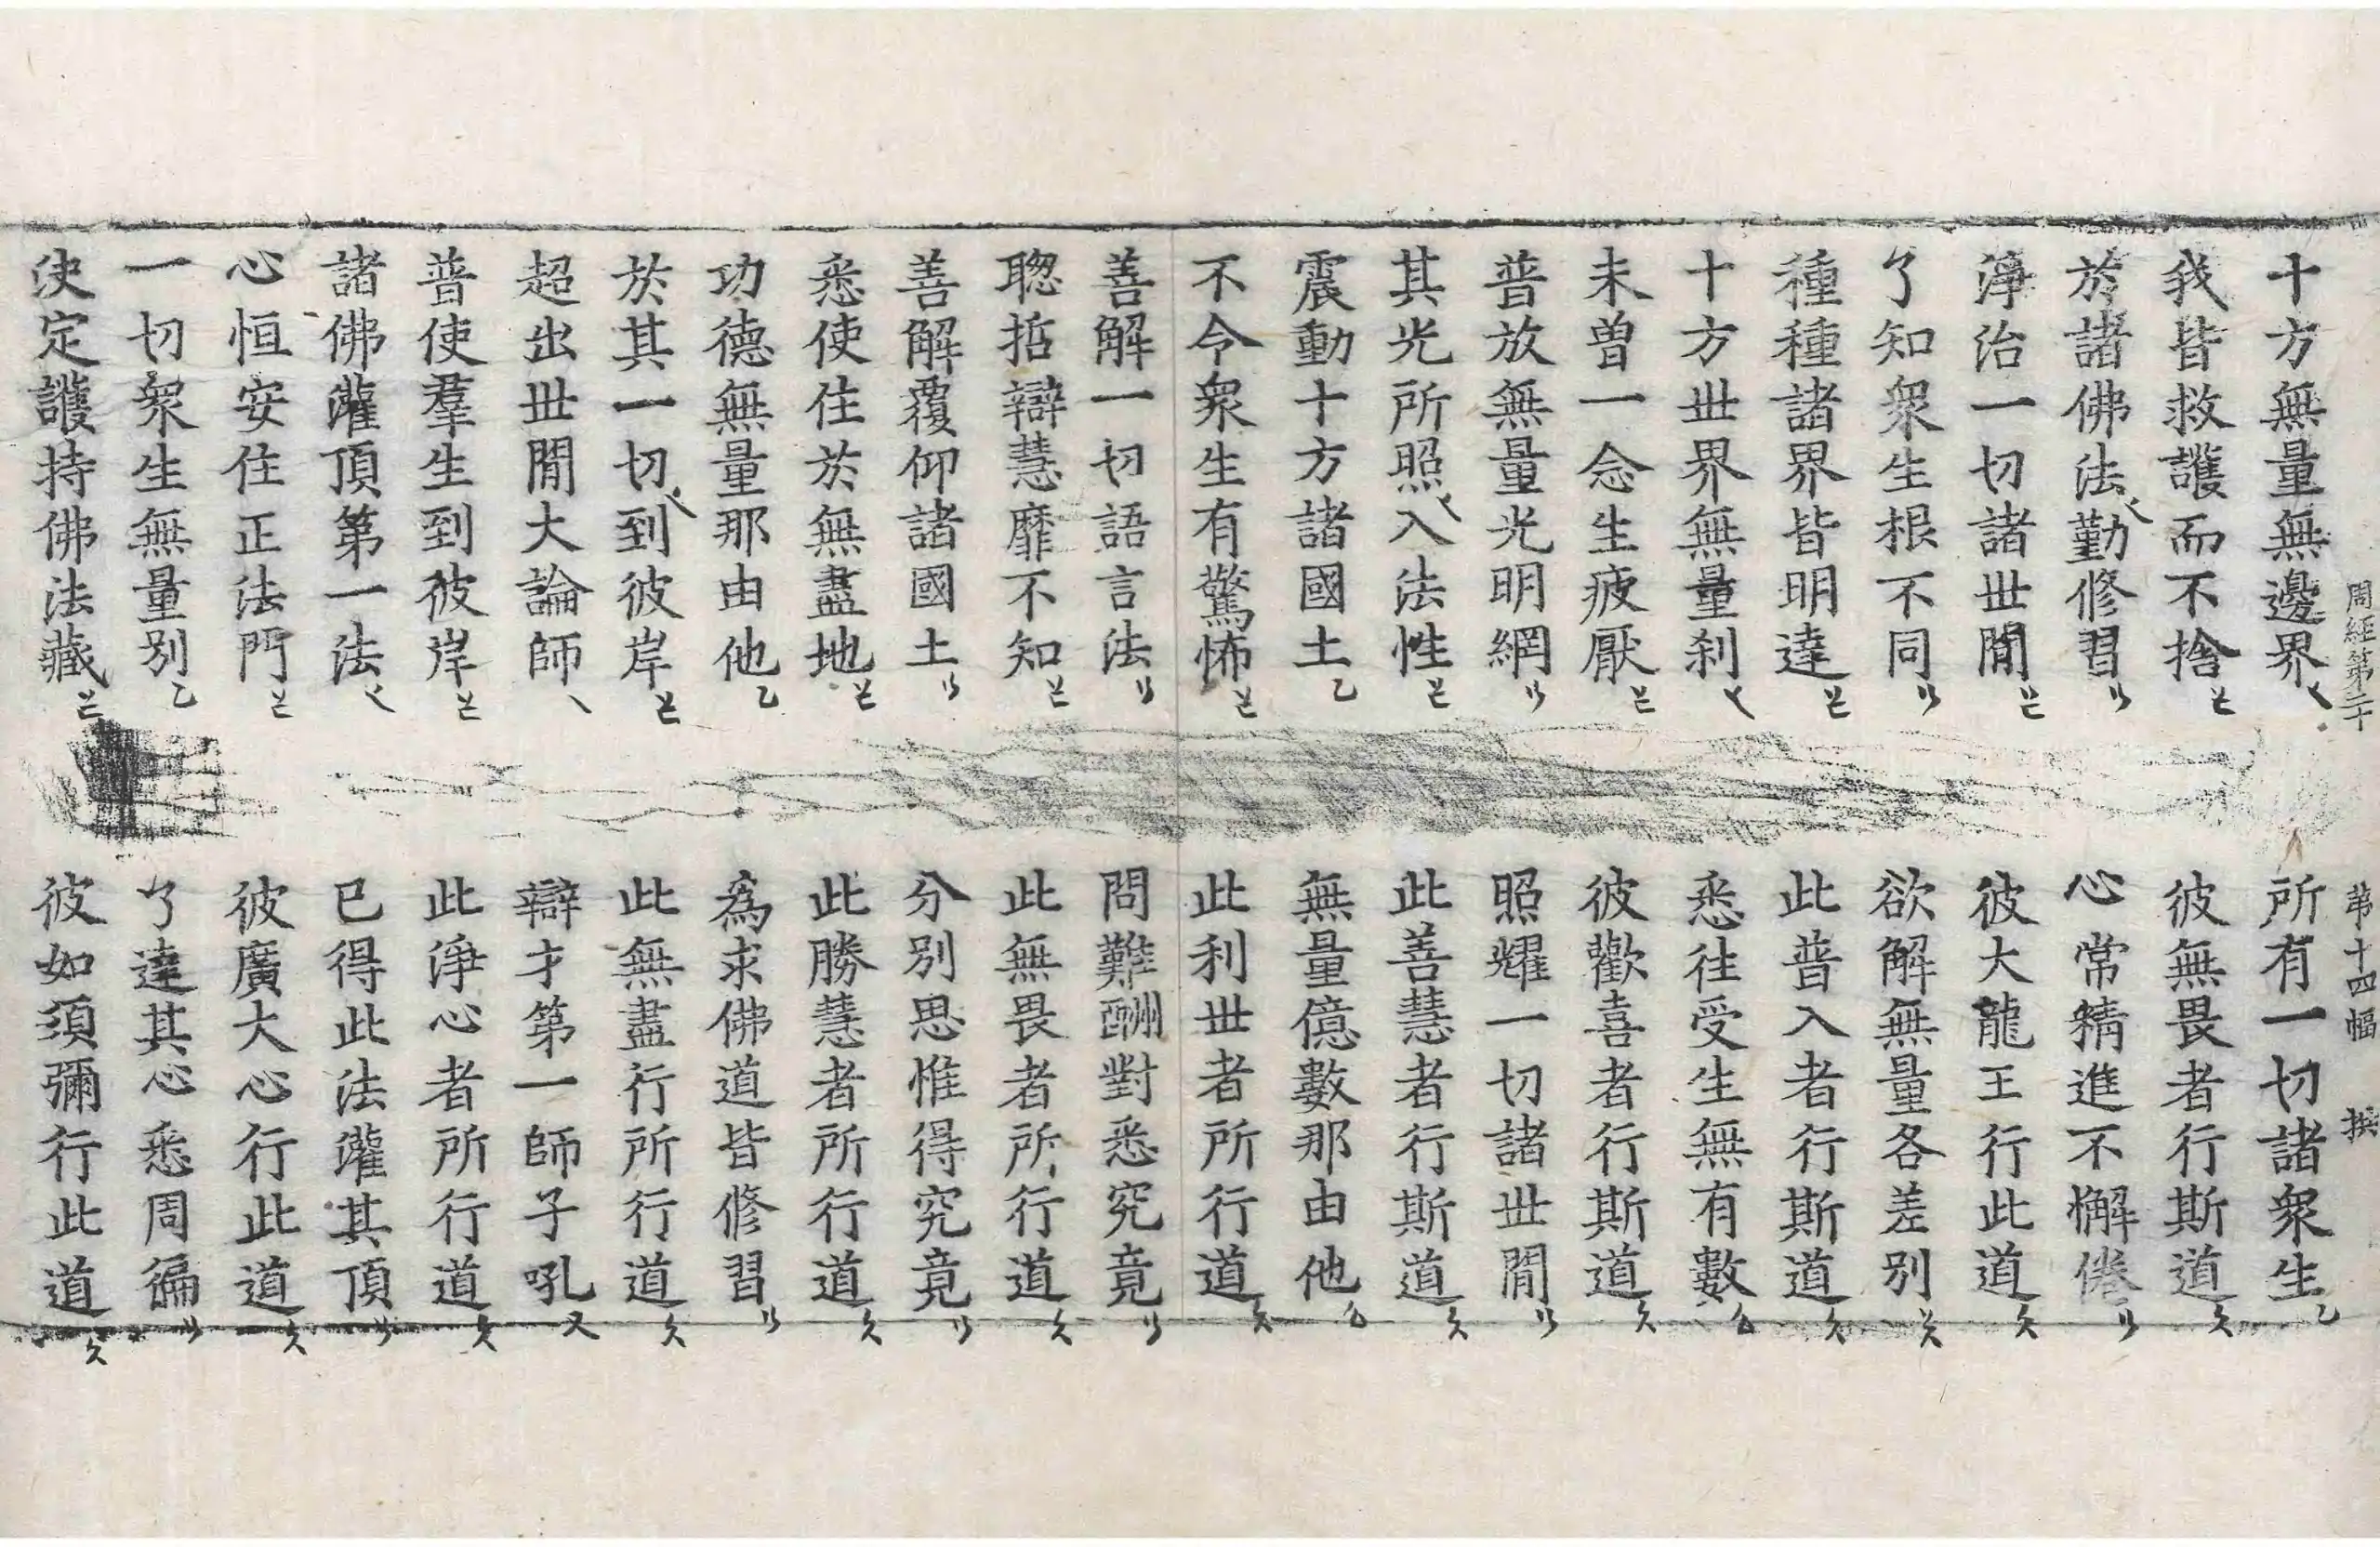 周經第二十 第十四幅
十方無量無邊界 所有一切諸衆生
我皆救護而不捨 彼無畏者行斯道
於諸佛法勤修習 心常精進不懈倦
淨治一切諸世閒 彼大龍王行此道
了知衆生根不同 欲解無量各差別
種種諸界皆明達 此普入者行斯道
十方世界無量刹 悉往受生無有數
未曽一念生疲厭 彼歡喜者行斯道
普放無量光明網 照耀一切諸世閒
其光所照入法性 此善慧者行斯道
震動十方諸國土 無量億數那由他
不令衆生有驚怖 此利世者所行道
善解一切語言法 問難酬對悉究竟
聰哲辯慧靡不知 此無畏者所行道
善解覆仰諸國土 分別思惟得究竟
悉使住於無盡地 此勝慧者所行道
功德無量那由他 爲求佛道皆修習
於其一切到彼岸 此無盡行所行道
超出世閒大論師 辯才第一師子吼
普使羣生到彼岸 此淨心者所行道
諸佛灌頂第一法 已得此法灌其頂
心恒安住正法門 彼廣大心行此道
一切衆生無量別 了達其心悉周徧
決定護持佛法藏 彼如須彌行此道